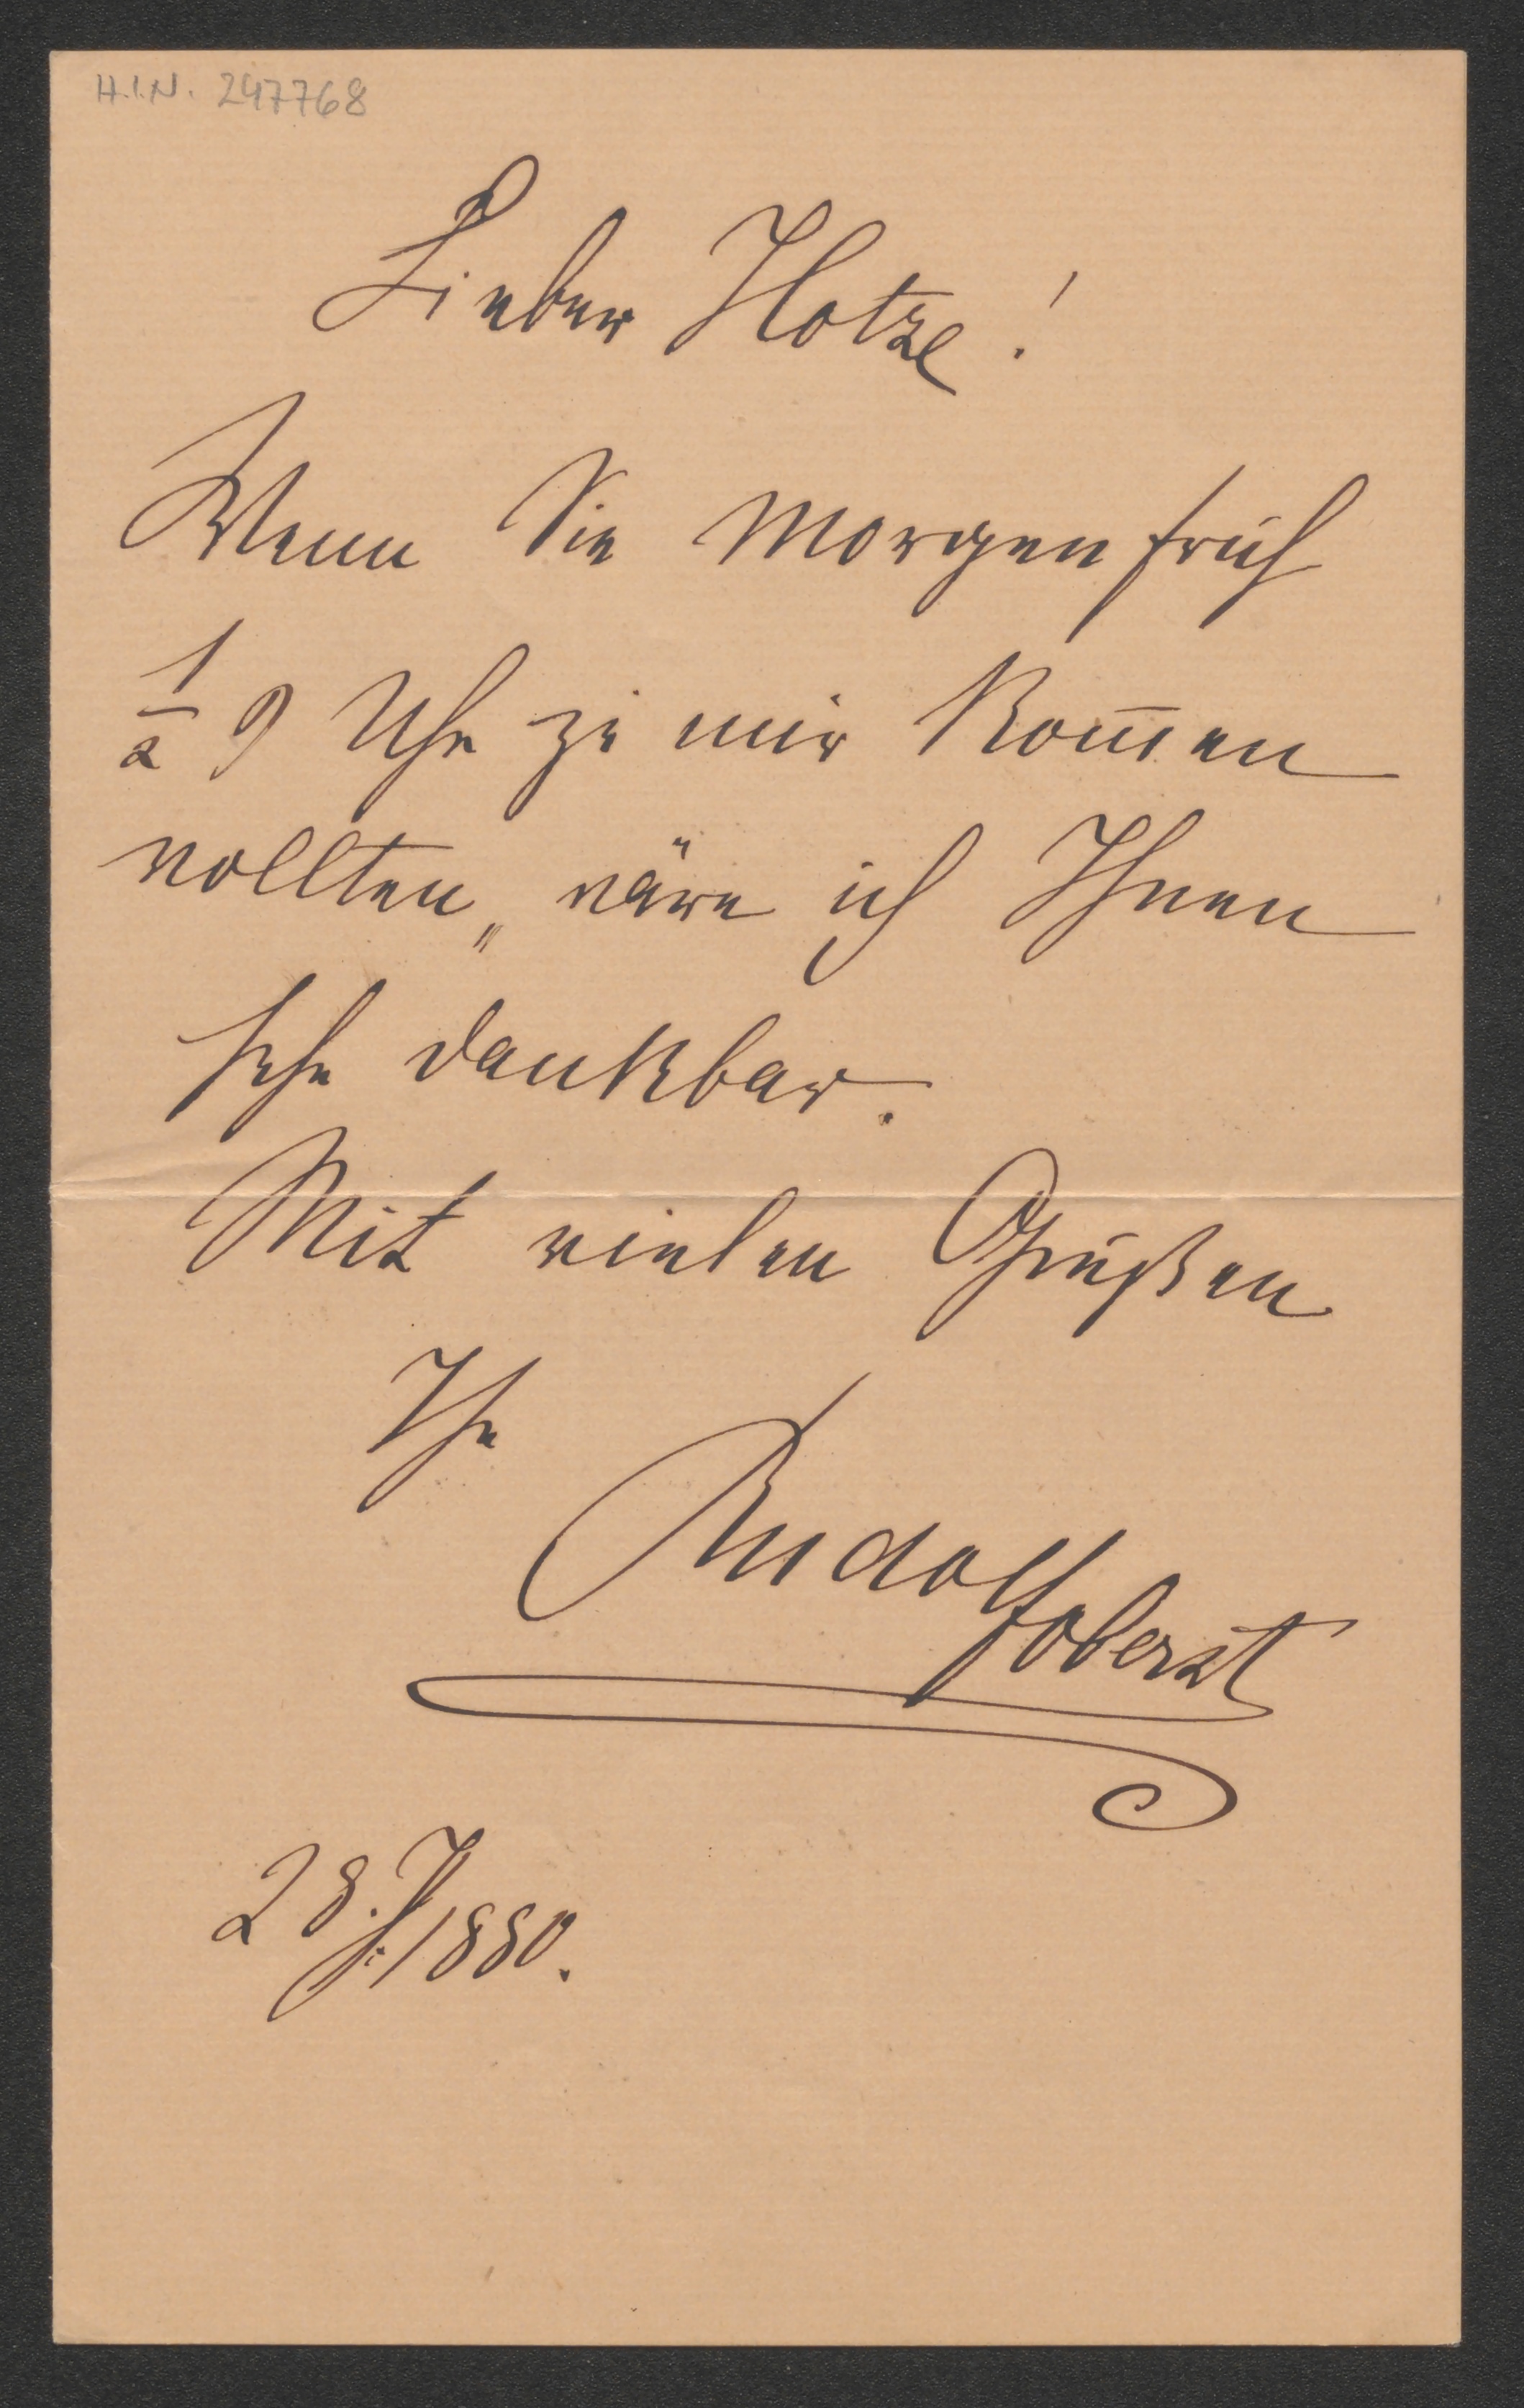 H.I.N. 247768
Lieber Hotze!
Wenn Sie morgen früh
½ 9 Uhr zu mir kom̄en
wollten, wäre ich Ihnen
sehr dankbar.
Mit vielen Grüßen
Ihr
Rudolf oberst
28. 1880.